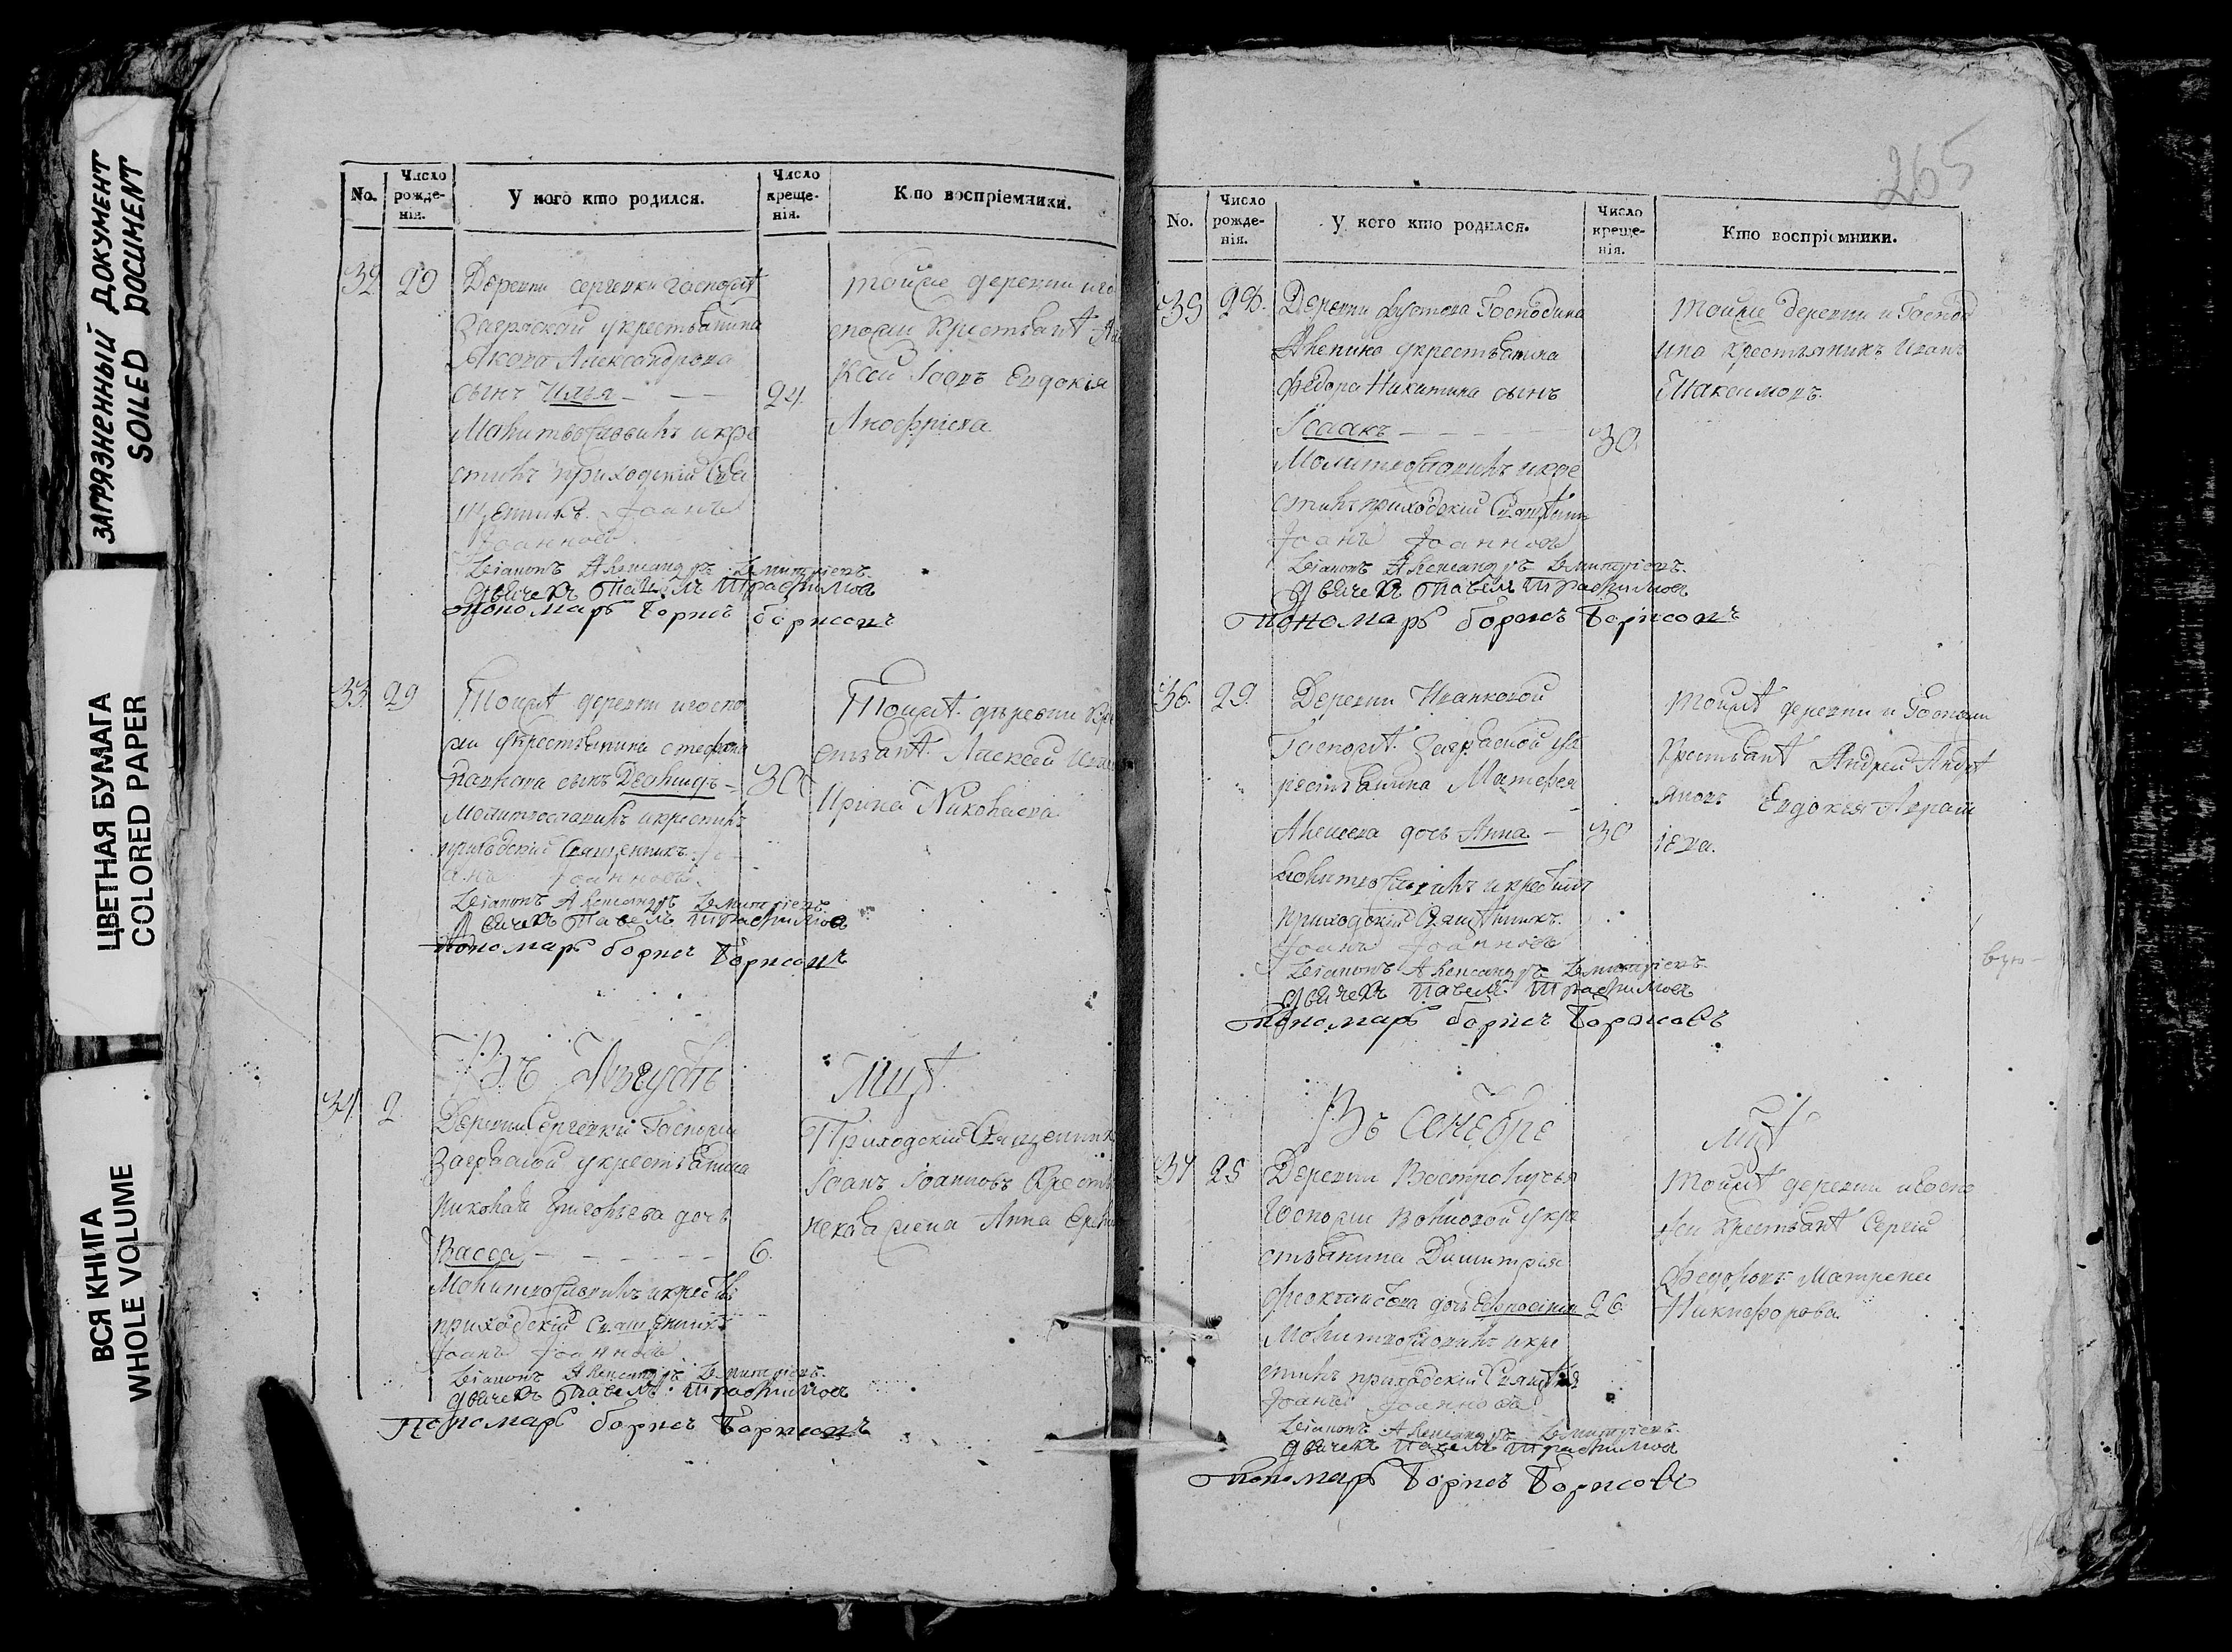 ЗАГРЯЗНЕННЫЙ ДОКУМЕНТ
SOILED DOCUMENT
ЦВЕТНАЯ БУМАГА
COLORED PAPER
ВСЯ КНИГА
WHOLE VOLUME
No.
Число рожде-нія.
У кого кто родился.
Число креще-нія.
Кто воспріемники.
32 20 Деревни сергевки госпожѣ
Загряской укрестьянина
Якова Александрова
сынъ Илья 24
Молитвословилъ икре
стилъ приходскій Свя
щенникъ Іоаннъ
Іоанновъ
Діаконъ Александръ Димитріевъ
Дьячекъ Павелъ Трофимовъ
Пономарь Борисъ Борисовъ
тойже деревни иго
спожи крестьянѣ
Іоавъ Евдокія
Анофріева
33. 29 Тоижѣ деревни игоспо
жи укрестьянина стефана
сынъ Леонидъ 30
Молитвословилъ икрестилъ
приходскій Священникъ Іо
анъ Іоанновъ
Діаконъ Александръ Димитріевъ
Дьячекъ Павелъ Трофимовъ
Пономарь Борисъ Борисовъ
Тоижѣ деревни Кре
стьянѣ Алексей
Ирина Николаева
Въ Августѣ Мцѣ
34. 2. Деревни Сергевки Госпожи
Загряской укрестьянина
Николая Григорьева дочь
Васса 6.
Молитвословилъ икрести
приходскій Священникъ
Іоанъ Іоанновъ
Діаконъ Александръ Димитріевъ
Дьячекъ Павелъ Трофимовъ
Пономарь Борисъ Борисовъ
Приходскій Священник
Іоанъ Іоанновъ Крестья
нская жена Анна
265
No.
Число рожде-нія.
У кого кто родился.
Число креще-нія.
Кто воспріемники.
35 28. Деревни Господина
укрестьянина
Федора Никитина сынъ
Ісаакъ 30
Молитвословилъ икре
стилъ приходскій Священ
Іоанъ Іоанновъ
Діаконъ Александръ Димитріевъ
Дьячекъ Павелъ Трофимовъ
Пономарь Борисъ Борисовъ
тойже деревни и Господ
ина крестьянинъ Иванъ
Максимовъ
36. 29. Деревни Иванковой
Госпожѣ Загряской ук
рестьянина Матфея
Алексеева дочь Анна 30
Молитвословилъ икрестил
приходскій Священникъ
Іоанъ Іоанновъ
Діаконъ Александръ Димитріевъ
Дьячекъ Павелъ Трофимовъ
Пономарь Борисъ Борисовъ
тоижѣ деревни и Госпожи
крестьянѣ Андрей Андре
яновъ Евдокея Аврам
іева.
Въ Сентебре Мцѣ
37 25 Деревни Вострокусья
Госпожи Волковой укре
стьянина Димитрія
Феоктистова дочь Ефросинія 26
Молитвословилъ икре
стилъ приходскій Священ
Іоанъ Іоанновъ
Діаконъ Александръ Димитріевъ
Дьячекъ Павелъ Трофимовъ
Пономарь Борисъ Борисовъ
тоижѣ деревни игоспо
жи крестьянѣ Сергій
Федоровъ Матрена
Никифорова